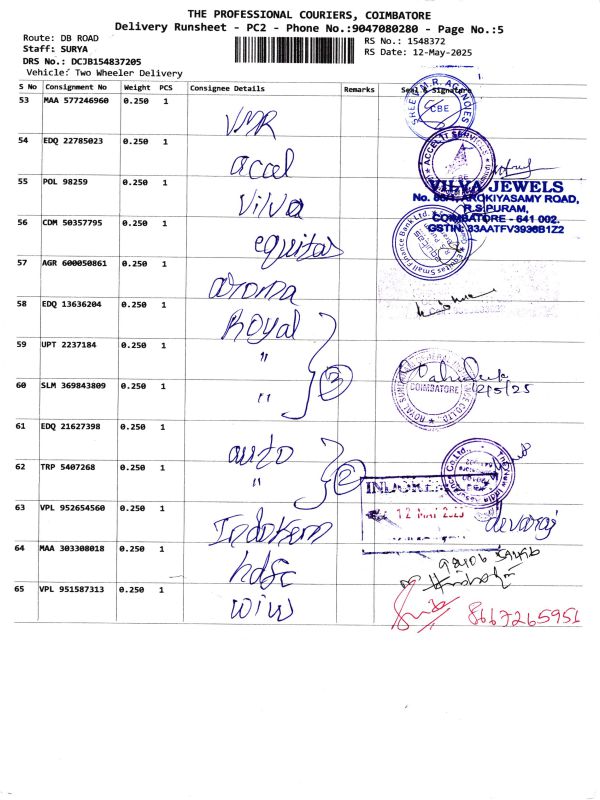 THE PROFESSIONAL COURIERS, COIMBATORE
Delivery Runsheet - PC2 - Phone No.:9047080280 - Page No.:5
Route: DB ROAD
Staff: SURYA
DRS No.: DCJB154837205
Vehicle: Two Wheeler Delivery
RS No.: 1548372
RS Date: 12-May-2025
S No Consignment No Weight PCS Consignee Details Remarks Seal & Signature
53 MAA 577246960 0.250 1 VMR
SREE V.M.R. AGENCIES CBE
54 EDQ 22785023 0.250 1 accel
ACCEL IT SERVICES
55 POL 98259 0.250 1 Vilva
VILVA JEWELS
No. 86/1, AROKIYASAMY ROAD,
R.S.PURAM,
COIMBATORE - 641 002.
GSTIN: 33AATFV3936B1Z2
56 CDM 50357795 0.250 1 equitas
Equitas Small Finance Bank Ltd.
57 AGR 600050861 0.250 1 aroma
58 EDQ 13636204 0.250 1 Royal
59 UPT 2237184 0.250 1 "
60 SLM 369843809 0.250 1 "
3
COIMBATORE
12/5/25
61 EDQ 21627398 0.250 1 auto
62 TRP 5407268 0.250 1 "
2
The New India
63 VPL 952654560 0.250 1 Indokem
INDOKEM
12 MAY 2025
devaraj
64 MAA 303308018 0.250 1 hdfc
65 VPL 951587313 0.250 1 win
8667265951